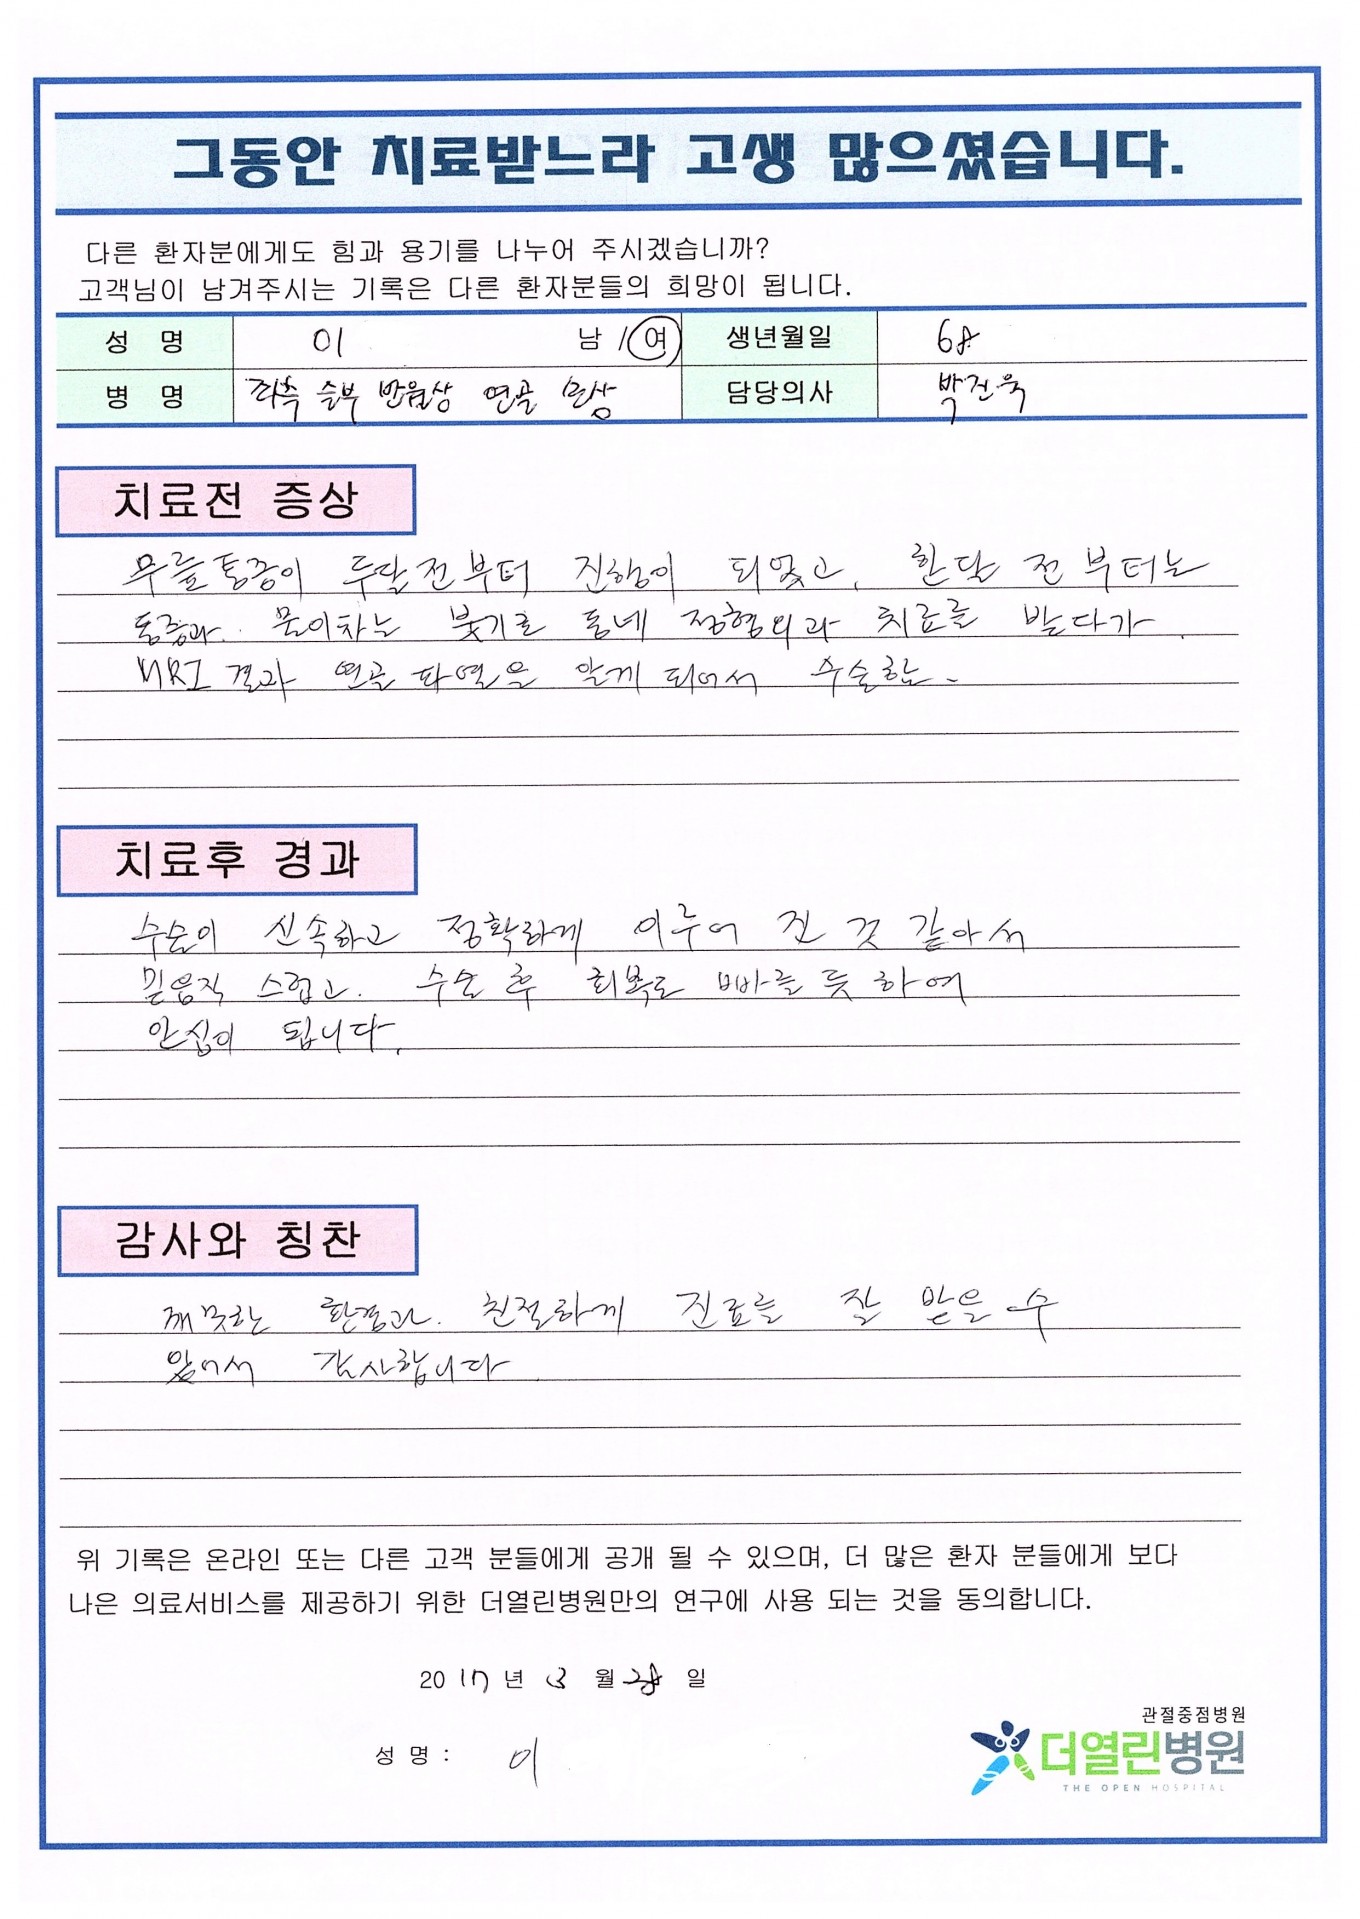 그동안 치료받느라 고생 많으셨습니다.
다른 환자분에게도 힘과 용기를 나누어 주시겠습니까?
고객님이 남겨주시는 기록은 다른 환자분들의 희망이 됩니다.
성 명 이 남 / 여 생년월일 68
병 명 좌측 슬부 반월상 연골 손상 담당의사 박건욱
치료전 증상
무릎통증이 두달전부터 진행이 되었고, 한달 전부터는
통증과. 물이차는 붓기로 동네 정형외과 치료를 받다가.
MRI 결과 연골파열을 알게 되어서 수술함.
치료후 경과
수술이 신속하고 정확하게 이루어 진 것 같아서
믿음직 스럽고. 수술 후 회복도 빠를 듯 하여
안심이 됩니다.
감사와 칭찬
깨끗한 환경과. 친절하게 진료를 잘 받을 수
있어서 감사합니다.
위 기록은 온라인 또는 다른 고객 분들에게 공개 될 수 있으며, 더 많은 환자 분들에게 보다
나은 의료서비스를 제공하기 위한 더열린병원만의 연구에 사용 되는 것을 동의합니다.
2017년 3월 28일
성 명 : 이
관절중점병원
더열린병원
THE OPEN HOSPITAL